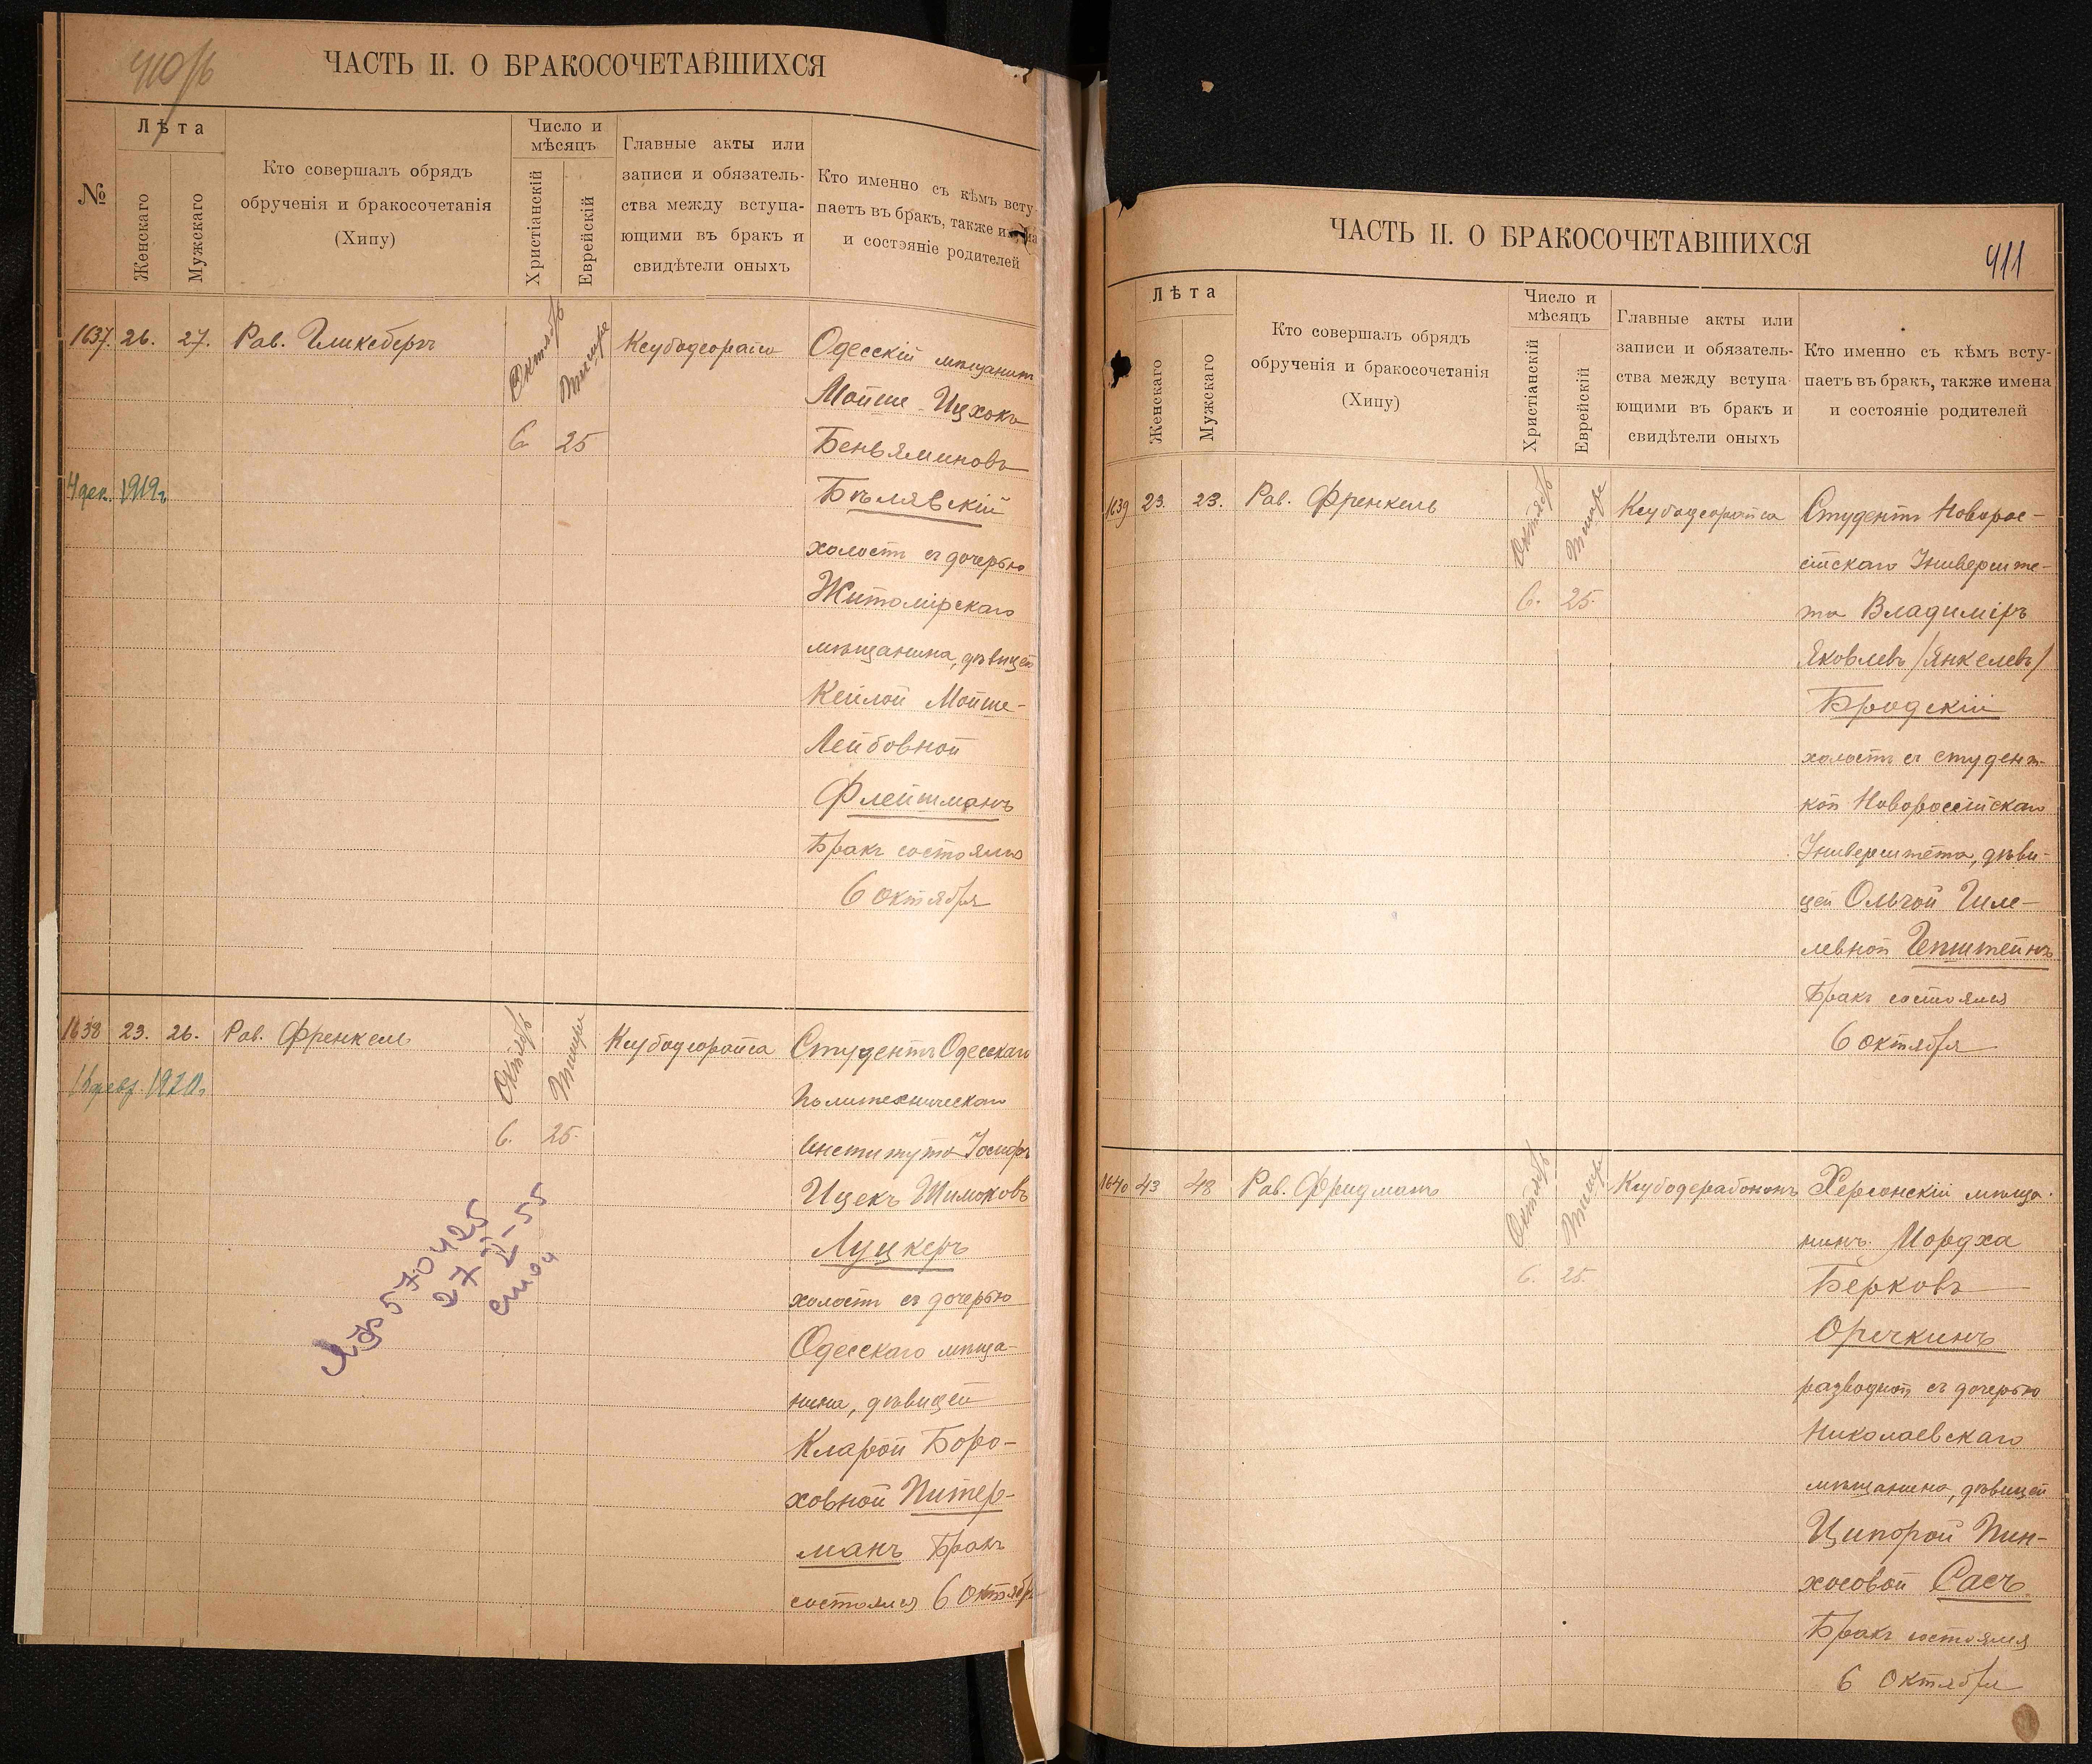 410/б
ЧАСТЬ II. О БРАКОСОЧЕТАВШИХСЯ
№
Лѣта
Женскаго
Мужскаго
Кто совершалъ обрядъ
обрученія и бракосочетанія
(Хипу)
Число и
мѣсяцъ
Христіанскій
Еврейскій
Главные акты или
записи и обязатель-
ства между вступа-
ющими въ бракъ и
свидѣтели оныхъ
Кто именно съ кѣмъ всту
паетъ въ бракъ, также
и состояніе родителей
1637. 26. 27. Рав. Гликсбергъ
Октябрь
Тишре
6 25
4 дек. 1919г.
Ксубадеорайса
Одесскій мѣщанин
Мойше-Ицхокъ
Беньяминовъ
Бѣлявскій
холостъ съ дочерью
Житомірскаго
мѣщанина, дѣвицей
Кейлой Мойше-
Лейбовной
Флейшманъ
Бракъ состоялся
6 октября
1638 23. 26. Рав. Френкель
Октябрь
Тишре
6. 25.
16 февр. 1920г.
570425
27-II-55
Ксубадеорайса
Студентъ Одесскаго
Политехническаго
Института Іосифъ
Ицекъ Шимоновъ
Луцкеръ
холостъ съ дочерью
Одесскаго мѣща-
нина, дѣвицей
Кларой Боро-
ховной Питер-
манъ Бракъ
состоялся 6 Октябр
ЧАСТЬ II. О БРАКОСОЧЕТАВШИХСЯ
411
Лѣта
Женскаго
Мужскаго
Кто совершалъ обрядъ
обрученія и бракосочетанія
(Хипу)
Число и
мѣсяцъ
Христіанскій
Еврейскій
Главные акты или
записи и обязатель-
ства между вступа-
ющими въ бракъ и
свидѣтели оныхъ
Кто именно съ кѣмъ всту-
паетъ въ бракъ, также имена
и состояніе родителей
1639 23. 23. Рав. Френкель
Октябрь
Тишре
6. 25.
Ксубадеорайса
Студентъ Новорос-
сійскаго Университе-
та Владиміръ
Яковлевъ /Янкелевъ/
Бродскій
холостъ съ студент-
кой Новороссійскаго
Университета, дѣви-
цей Ольгой Гиле-
левной Гепштейнъ
Бракъ состоялся
6 октября
1640 43 48 Рав. Фридманъ
Октябрь
Тишре
6. 25.
Ксубадерабононъ
Херсонскій мѣща-
нинъ. Мордха
Берковъ
Оречкинъ
разводной съ дочерью
Николаевскаго
мѣщанина, дѣвицей
Ципорой Пин-
хосовой Сасъ.
Бракъ состоялся
6 Октября